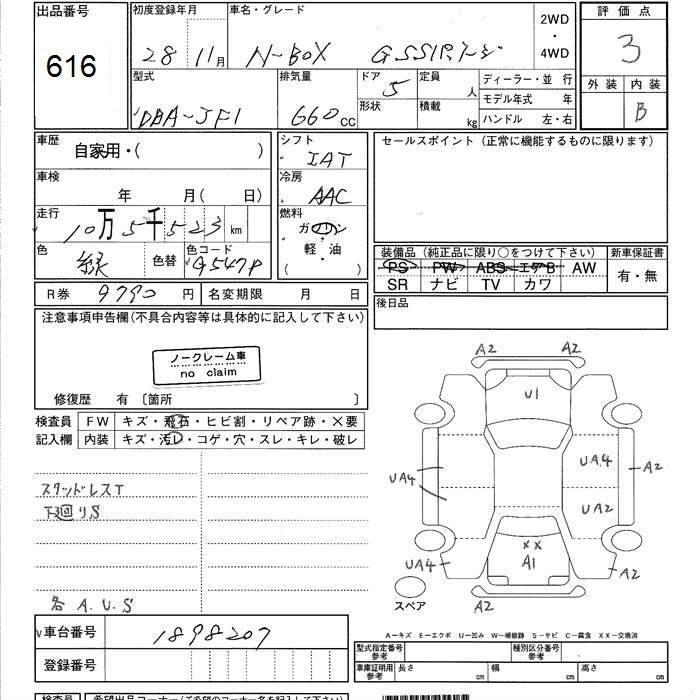 出品番号
616
初度登録年月
28年11月
車名・グレード
N-BOX G.SSパッケージ
2WD
・
4WD
評価点
3
外装 内装
B
型式
DBA-JF1
排気量
660cc
ドア
5
形状
定員
人
積載
kg
ディーラー・並行
モデル年式 年
ハンドル 左・右
車歴
自家用・( )
シフト
IAT
セールスポイント(正常に機能するものに限ります)
車検
年 月( 日)
冷房
AAC
走行
10万5千523km
燃料
ガソリン
軽・油
( )
色
緑
色替
色コード
G547P
装備品(純正品に限り○をつけて下さい)
PS PW ABS エアB AW
SR ナビ TV カワ
新車保証書
有・無
R券 9790円
名変期限 月 日
後日品
注意事項申告欄(不具合内容等は具体的に記入して下さい)
ノークレーム車
no claim
修復歴 有 〔箇所 〕
検査員
記入欄
FW キズ・飛石・ヒビ割・リペア跡・×要
内装 キズ・汚レ・コゲ・穴・スレ・キレ・破レ
スタッドレスT
下回りS
各 A.U.S
A2 A2
U1
UA4
UA4
A2
UA2
XX
A1
UA4
A2
A2
スペア
A−キズ E−エクボ U−凹み W−補修跡 S−サビ C−腐食 XX−交換済
V車台番号 1898207
登録番号
型式指定番号
参考
種別区分番号
参考
車庫証明用
参考
長さ cm 幅 cm 高さ cm
検査員
希望出品コーナー(ご希望のコーナー名を記入して下さい)